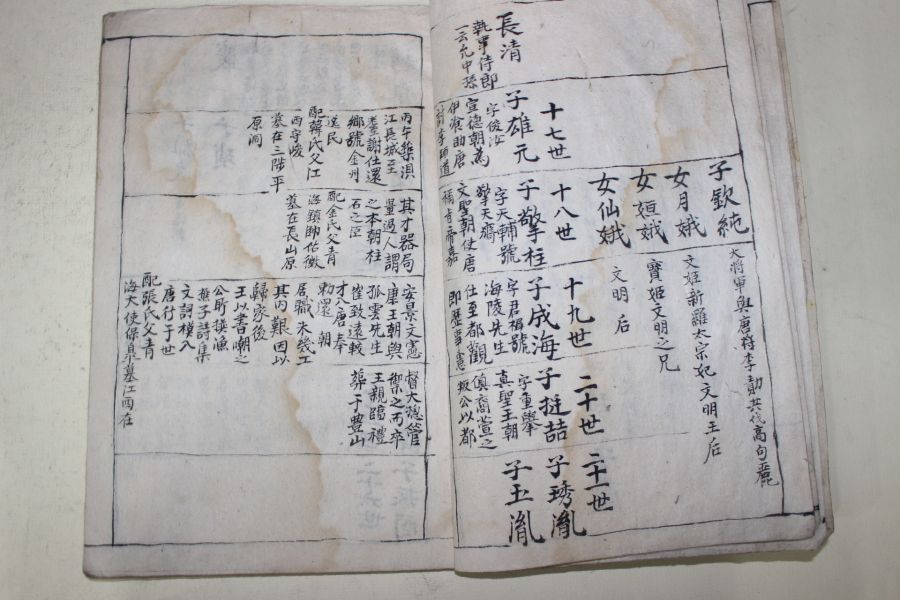 長清
執事侍郎
一云允中孫
子欽純
大將軍與唐將李勣共伐高句麗
女月娥
文姬新羅太宗妃文明王后
女姮娥
寶姬文明之兄
女仙娥
文明后
十七世
子雄元
字俊汝
宣德朝為
伊飡助唐
丙午築浿
江長城至
耋謝仕還
鄉號金州
送民
配韓氏父江
西守峻
墓在三階平
原洞
十八世
子擎柱
字天輔號
擎天齋
文聖朝使唐
稱肯帝嘉
其才器局
量過人謂
之本朝柱
石之臣
配金氏父青
海鎮帥佑徵
墓在長山原
十九世
子成海
字君楫號
海陵先生
仕至都觀
即歷事憲
安景文憲
康王朝與
孤雲先生
崔致遠較
才入唐奉
勅還朝
居職未幾丁
其內艱因以
歸家後
王以書嘲之
公所撰漁
樵子詩集
文詞樸入
唐行于世
配張氏父青
海大使保皐墓江西在
二十世
子挺喆
字重擧
真聖王朝
値甄萱之
叛公以都
督大摠管
禦之而卒
王親臨禮
葬于豊山
二十一世
子琇胤
子玉胤